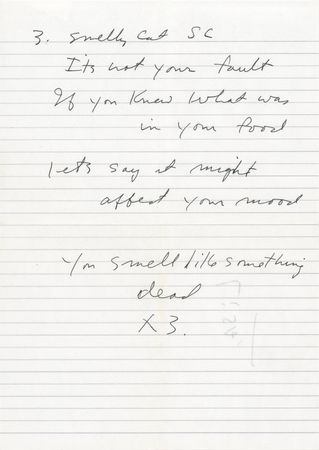 3. Smelly Cat SC
Its not your fault
If you Knew What was
in your food
Lets say it might
affect your mood
You smell like something
dead
X 3.